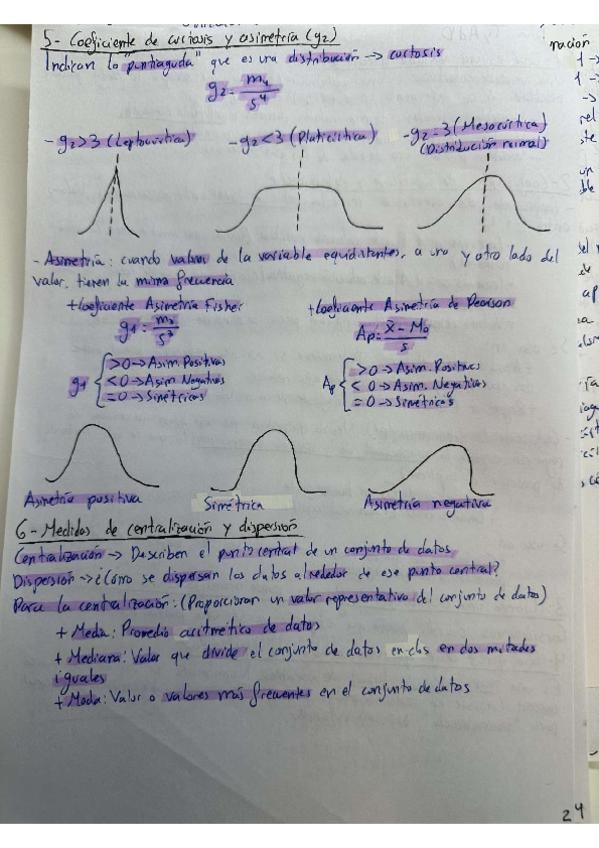 5- Coeficiente de curtosis y asimetría (g2)
Indican lo "puntiaguda" que es una distribución → curtosis
g2 = m4 / s^4
- g2 > 3 (Leptocúrtica)
- g2 < 3 (Platicúrtica)
- g2 = 3 (Mesocúrtica)
(Distribución normal)
- Asimetría: cuando valores de la variable equidistantes, a uno y otro lado del
valor, tienen la misma frecuencia
+ Coeficiente Asimetría Fisher
g1 = m3 / s^3
g1 { > 0 → Asim. Positivas
< 0 → Asim Negativas
= 0 → Simétricas
+ Coeficiente Asimetría de Pearson
Ap = x̄ - Mo / s
Ap { > 0 → Asim. Positivas
< 0 → Asim. Negativas
= 0 → Simétricas
Asimetría positiva
Simétrica
Asimetría negativa
6- Medidas de centralización y dispersión
Centralización → Describen el punto central de un conjunto de datos
Dispersión → ¿Cómo se dispersan los datos alrededor de ese punto central?
Para la centralización: (Proporcionan un valor representativo del conjunto de datos)
+ Media: Promedio aritmético de datos
+ Mediana: Valor que divide el conjunto de datos en dos mitades
iguales
+ Moda: Valor o valores más frecuentes en el conjunto de datos
24